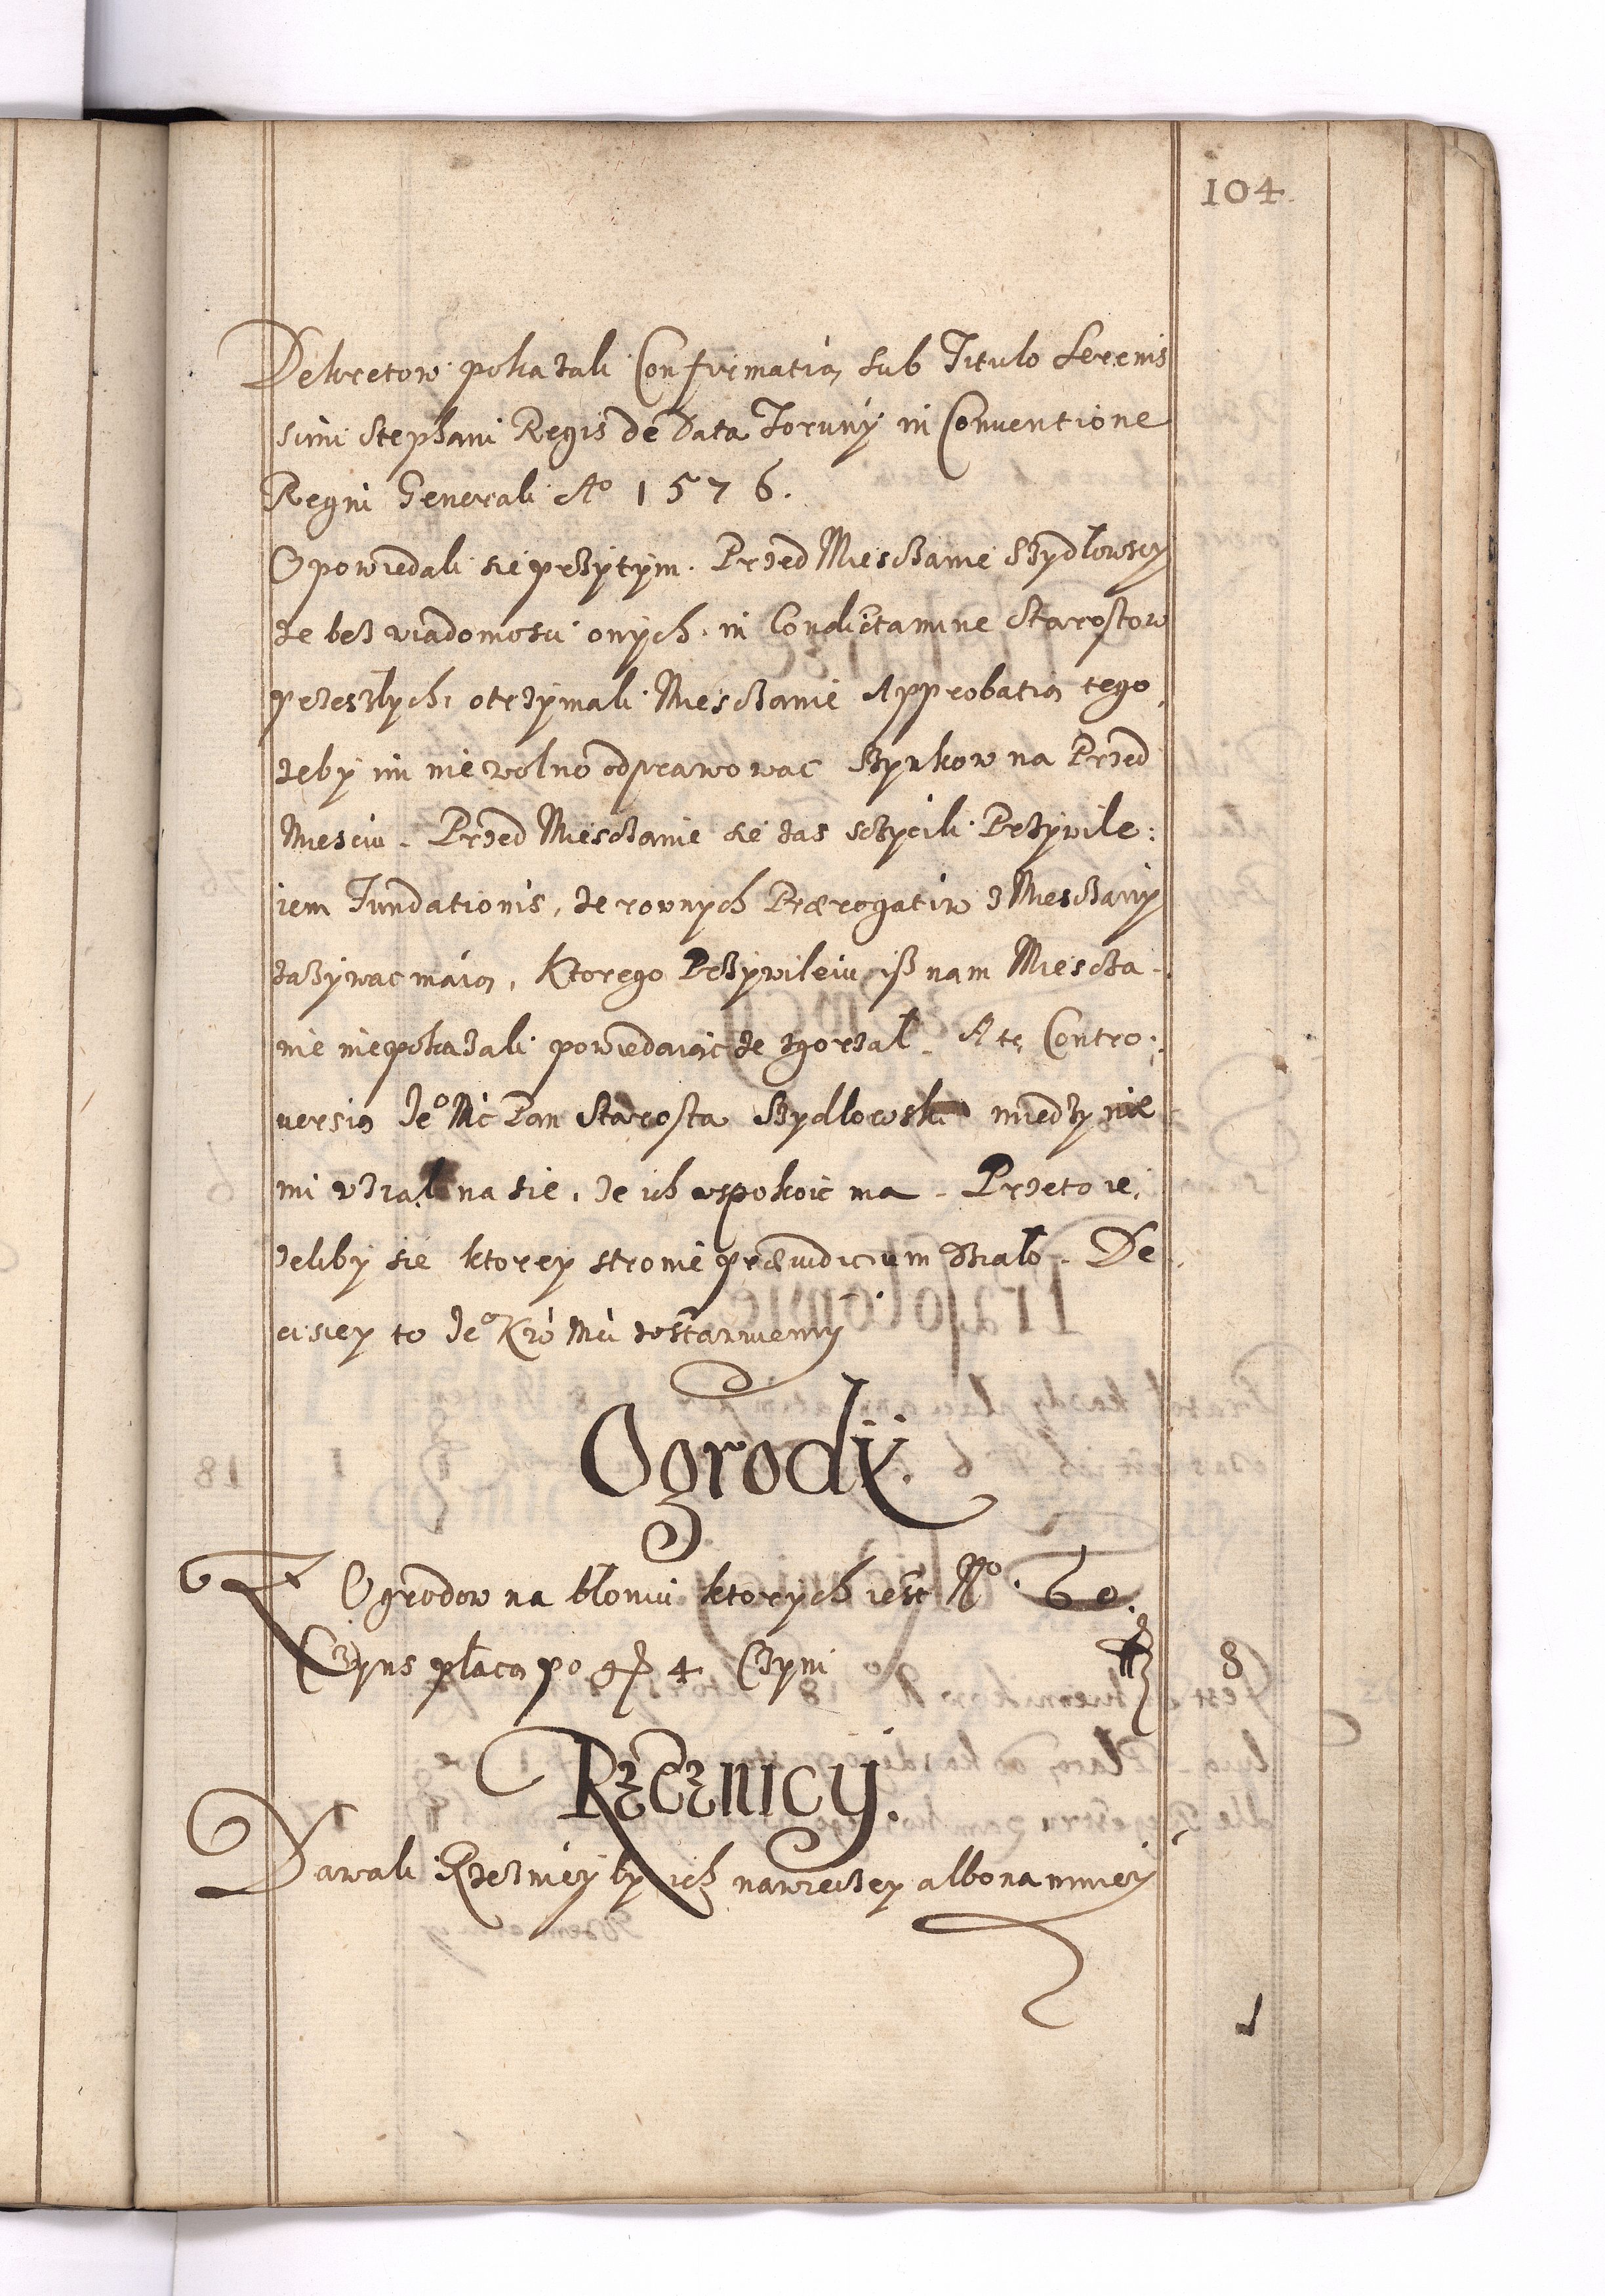 104
Dekretow pokazali Confirmatią sub Titulo Sereniſ
simi Stephani Regis de Data Toruny in Conventione
Regni Generali Ao 1576.
Opowiedali sie przytym. Przed Miesczanie Szydlowscy
ze bez wiadomosci onych. in Condictamine Starostow
przeszlych, otrzymali Miesczanie Approbatią tego,
zeby im nie wolno odprawowac Szynkow na Przed
Miesciu. Przed Miesczanie sie zas sczycili Przywile:
iem Fundationis, ze rownych Prærogatiw z Miesczany
zazywac maią, Ktorego Przywileiu isz nam Miescza-
nie niepokazali powiedaiąc ze zgorzal. A tę Contro:
versią Jeo Mć Pan Starosta Szydlowski miedzy nie
mi wzial na sie, ze ich uspokoic ma. Przeto ie,
zeliby sie ktorey stronie præiudicium dzialo. De
cisiey to Jeo Kró Mći zostawuiemy
Ogrody.
Z Ogrodow na bloniu ktorych iest No. 60.
Czyns placą po gr 4 Czyni 8
Rzeznicy.
Dawali Rzeznicy by ich nawieczey albo namniey